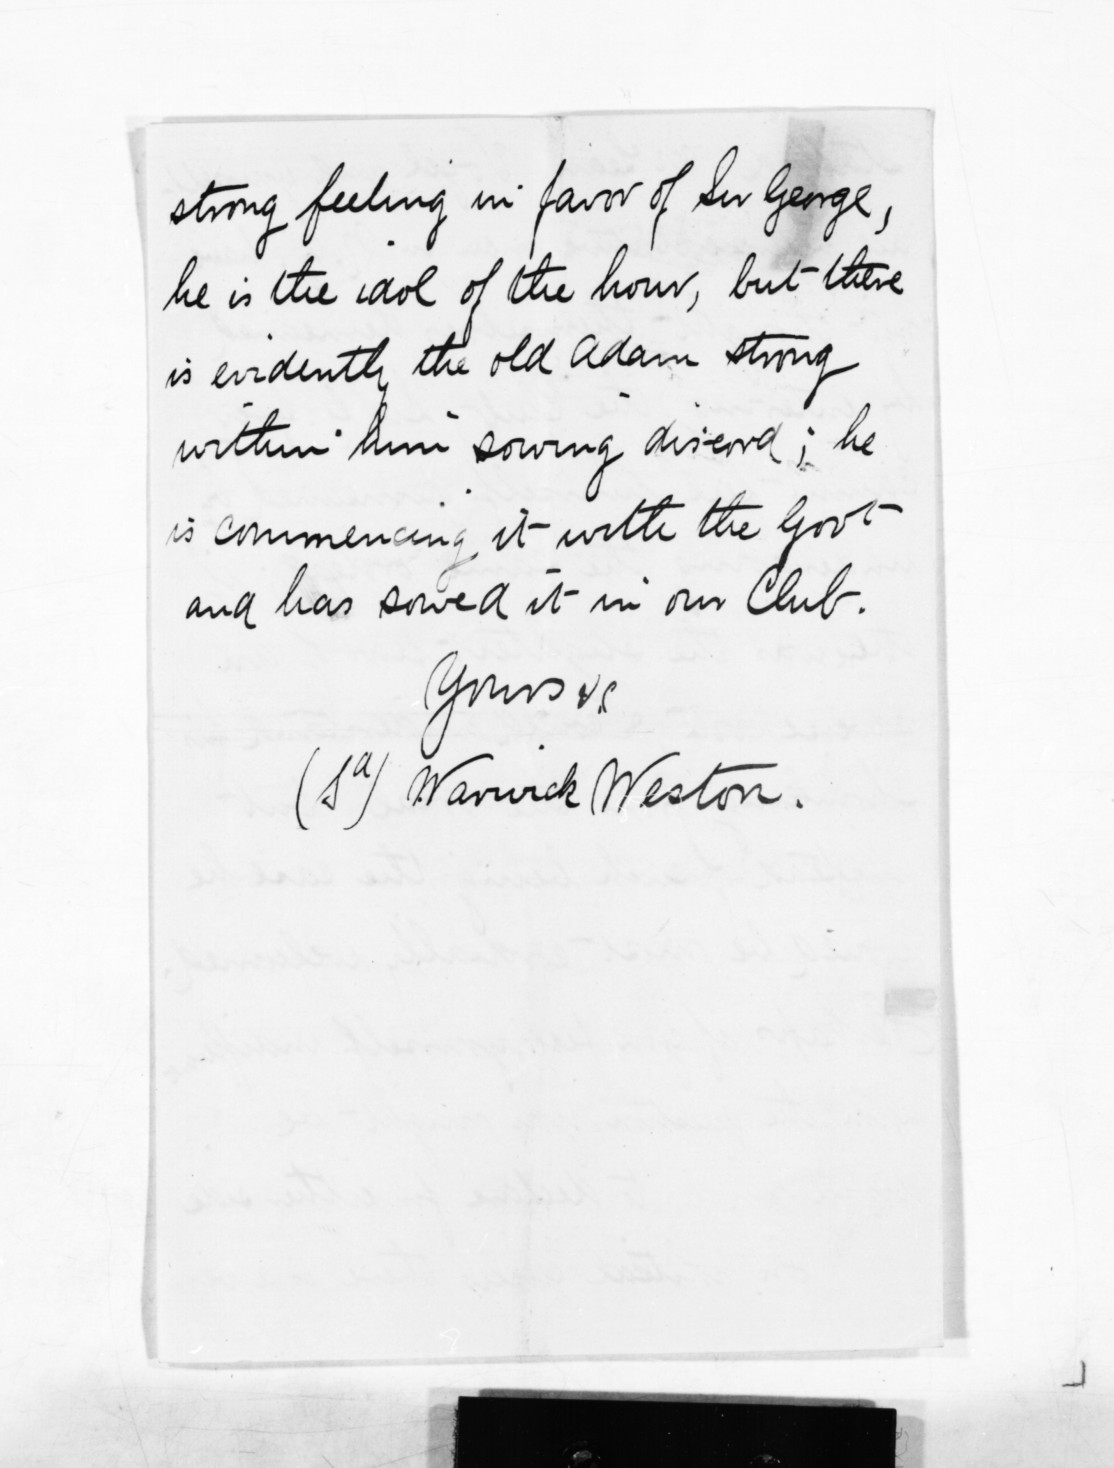 strong feeling in favor of Sir George,
he is the idol of the hour, but there
is evidently the old Adam strong
within him sowing discord; he
is commencing it with the Govt
and has sowed it in our Club.
Yours &c
(Sd) Warwick Weston.